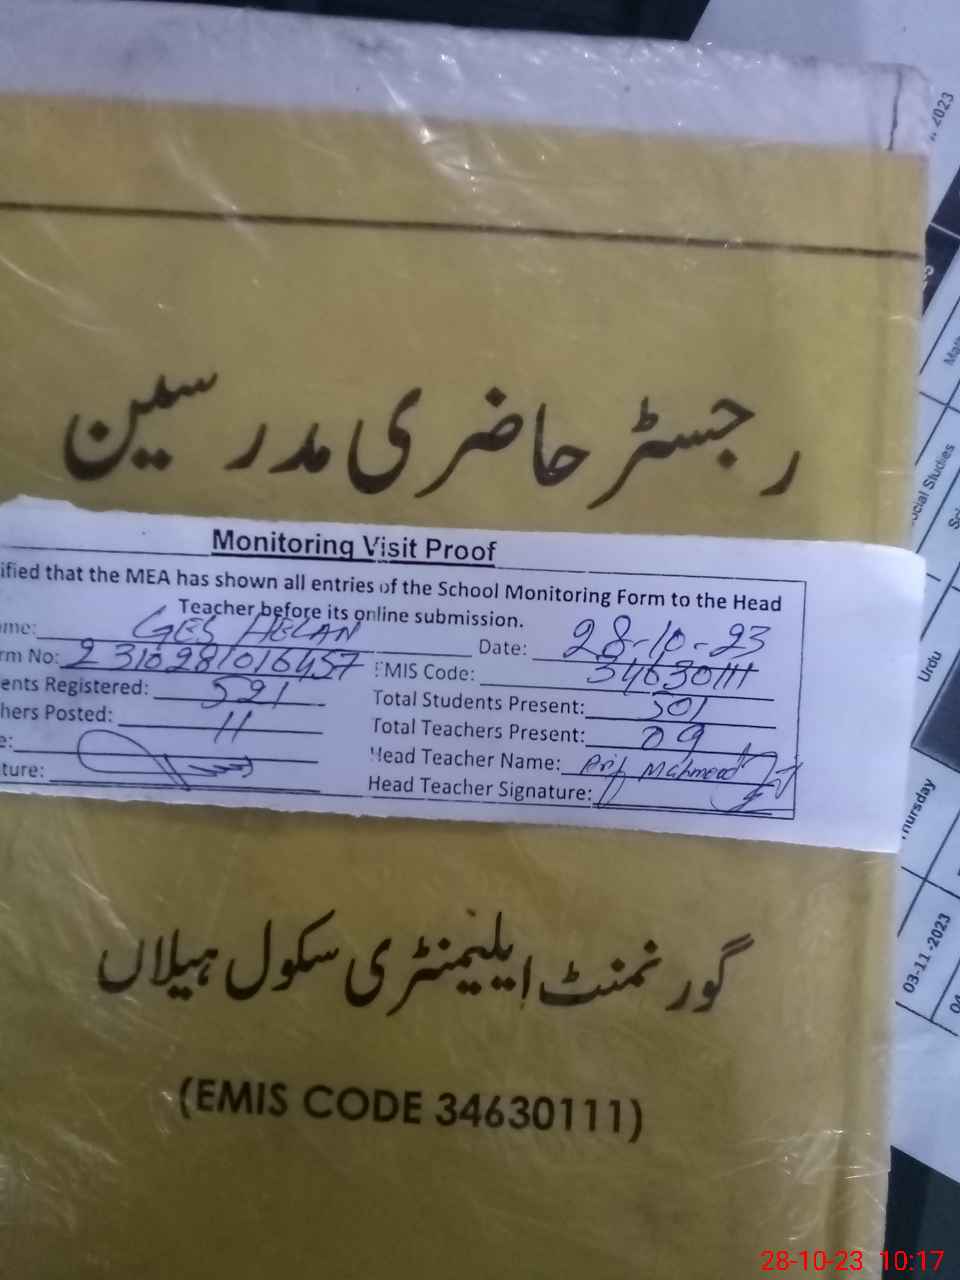 رجسٹر حاضری مدرسین
Monitoring Visit Proof
ified that the MEA has shown all entries of the School Monitoring Form to the Head
Teacher before its online submission.
ame: GES HELAN Date: 28-10-23
rm No: 2310281016457 EMIS Code: 34630111
ents Registered: 521 Total Students Present: 501
hers Posted: 11 Total Teachers Present: 09
e: Head Teacher Name: Arif Mahmood
ture: Head Teacher Signature:
گورنمنٹ ایلیمنٹری سکول ہیلاں
(EMIS CODE 34630111)
2023
Social Studies
Urdu
Thursday
03-11-2023
28-10-23 10:17